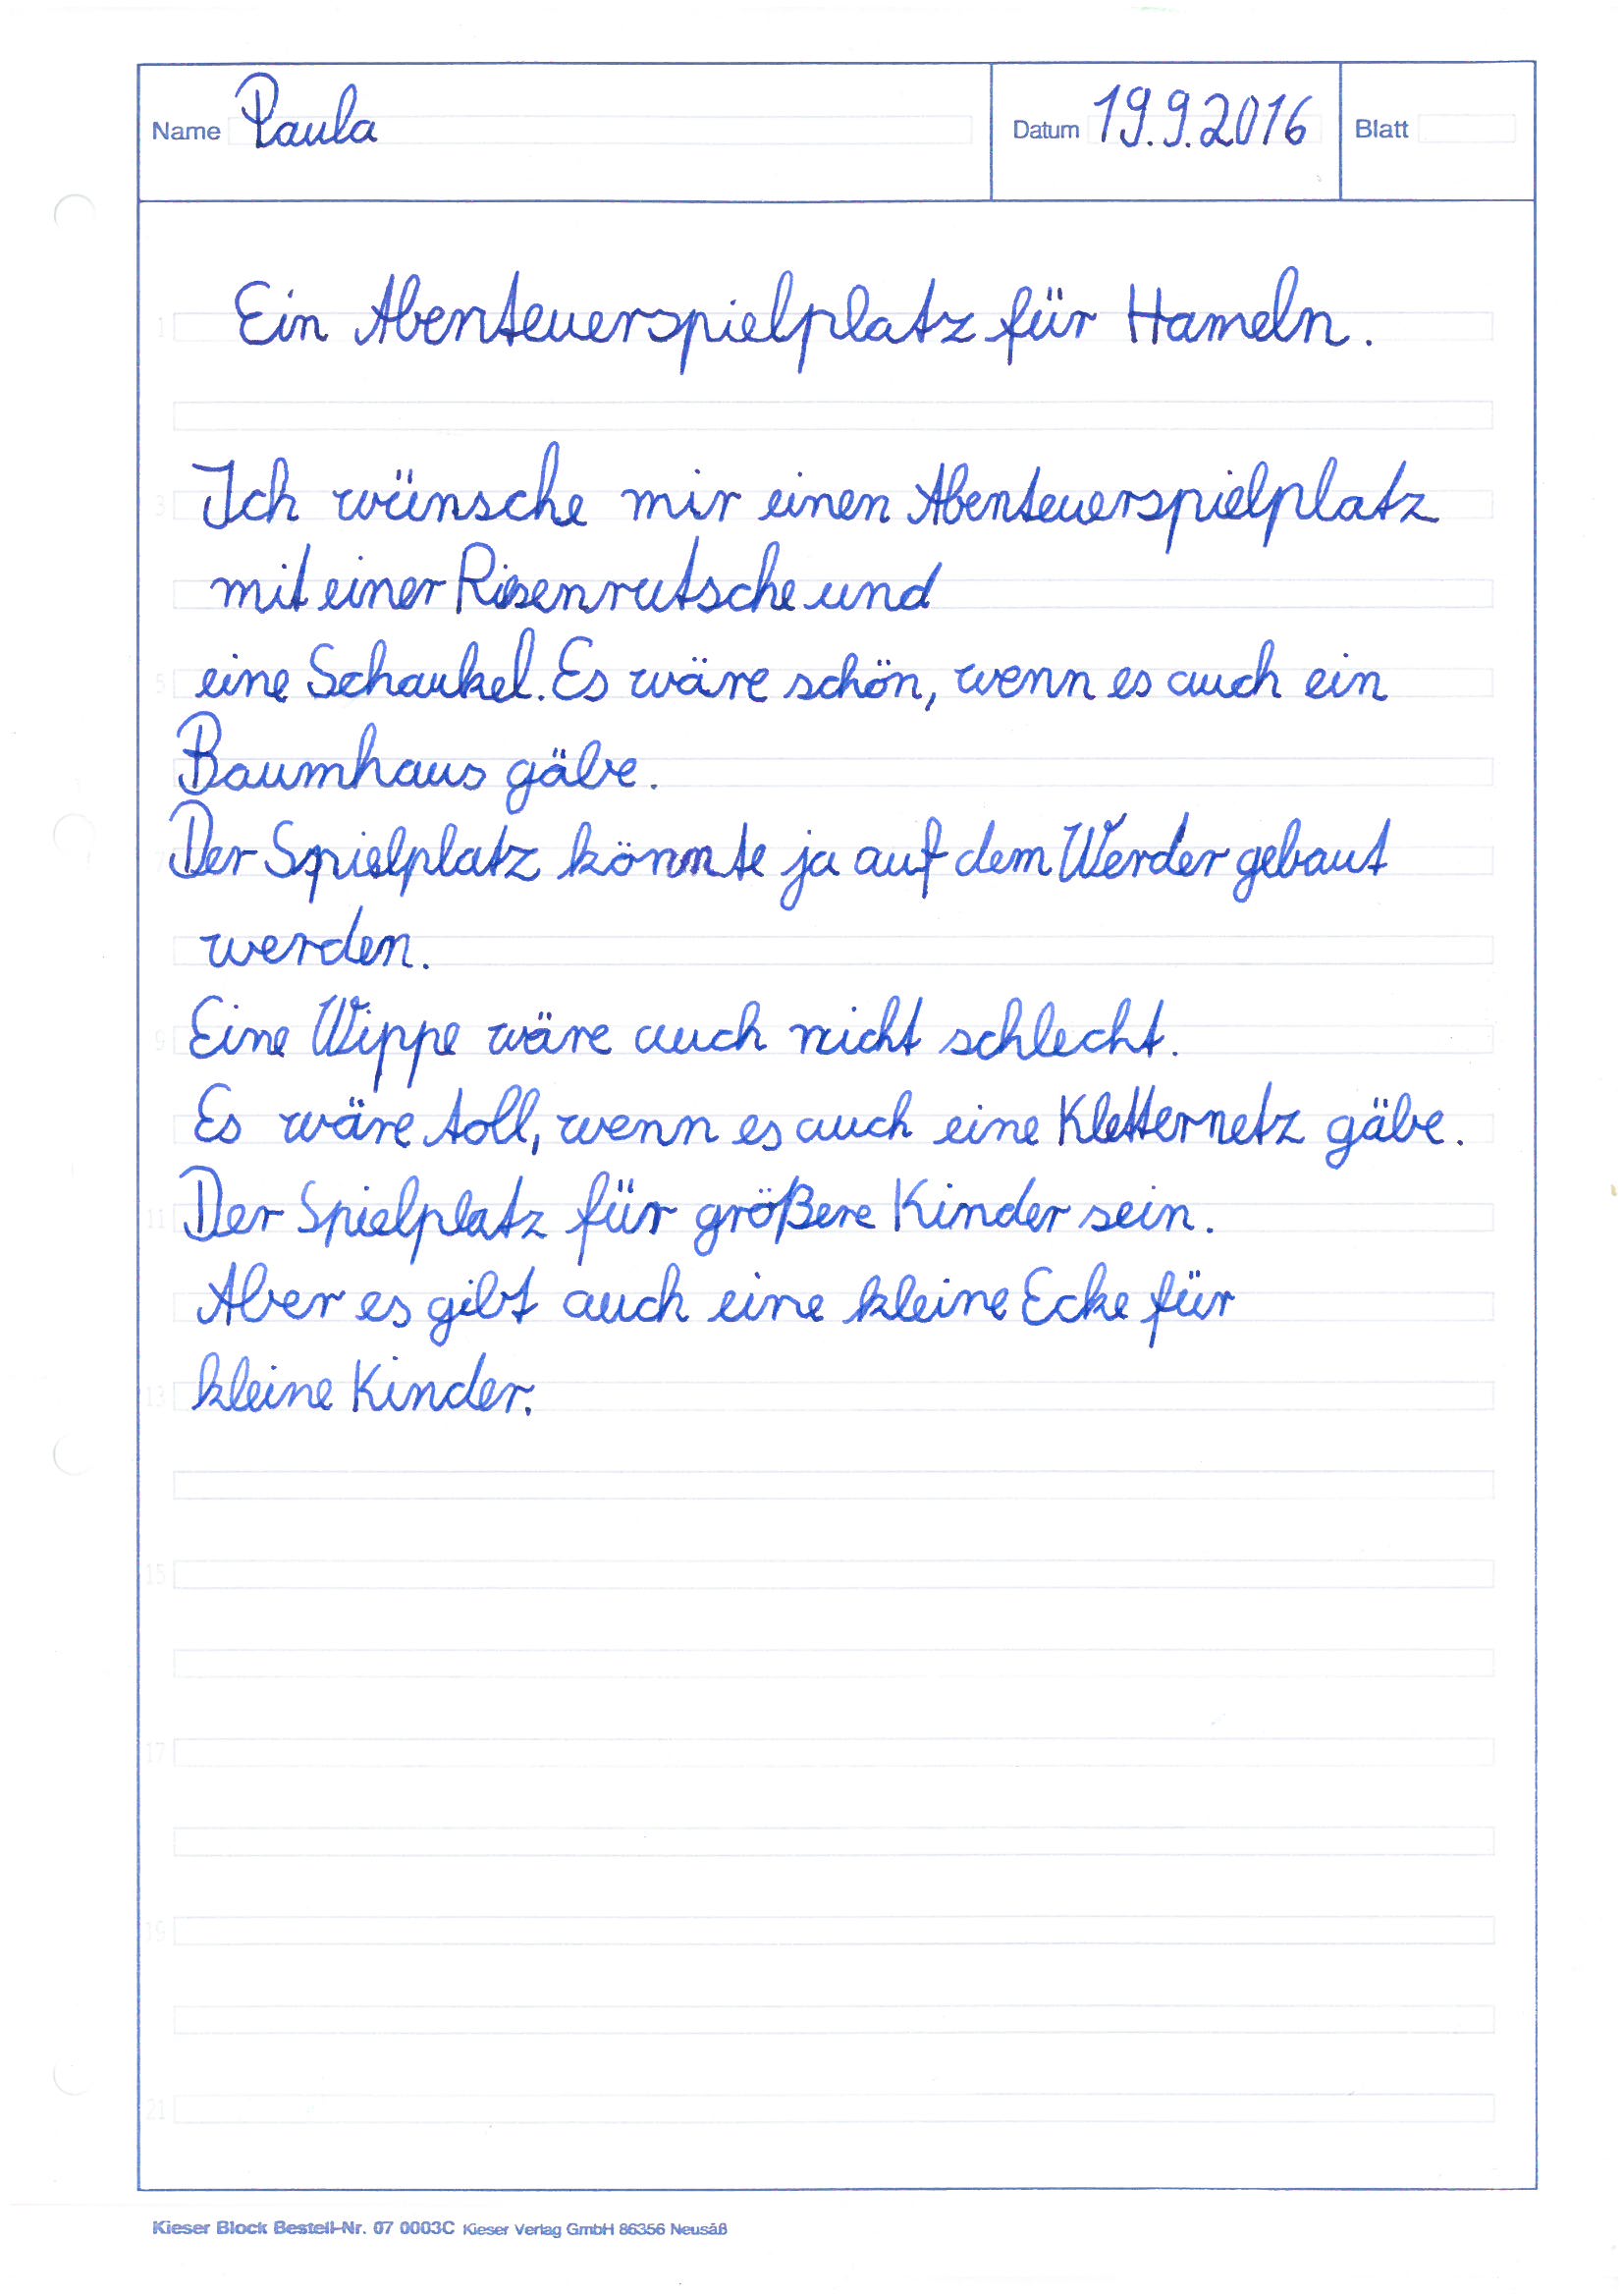 Name Paula Datum 19.9.2016 Blatt
1 Ein Abenteuerspielplatz für Hameln.
3 Ich wünsche mir einen Abenteuerspielplatz
mit einer Riesenrutsche und
5 eine Schaukel. Es wäre schön, wenn es auch ein
Baumhaus gäbe.
7 Der Spielplatz könnte ja auf dem Werder gebaut
werden.
9 Eine Wippe wäre auch nicht schlecht.
Es wäre toll, wenn es auch eine Kletternetz gäbe.
11 Der Spielplatz für größere Kinder sein.
Aber es gibt auch eine kleine Ecke für
13 kleine Kinder.
15
17
19
21
Kieser Block Bestell-Nr. 07 0003C Kieser Verlag GmbH 86356 Neusäß